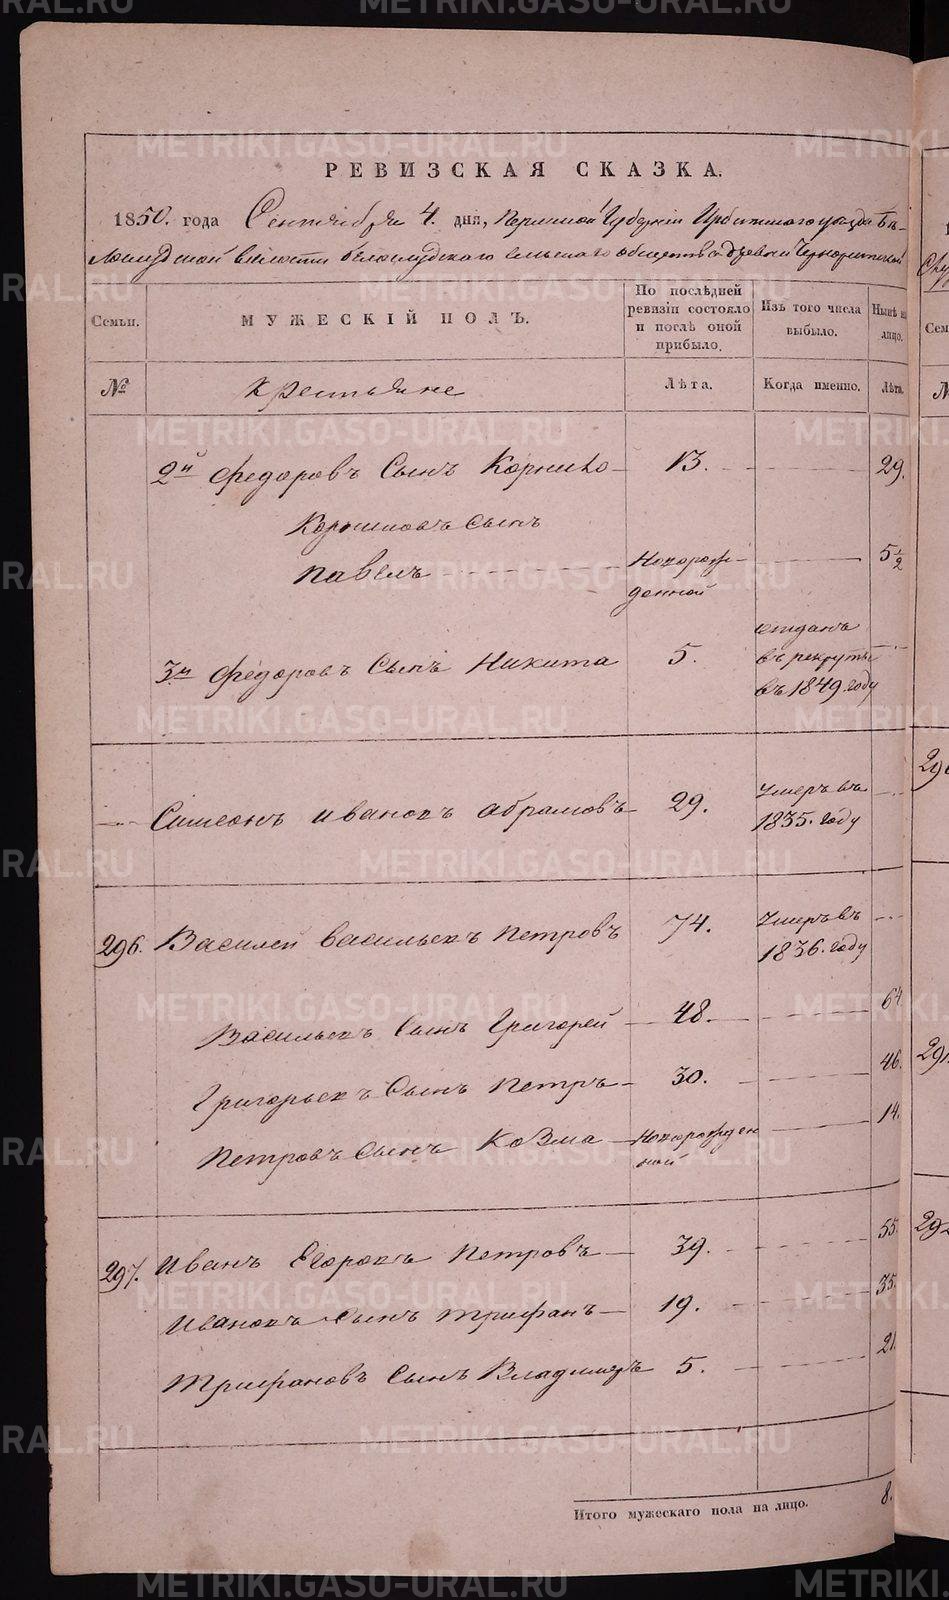 РЕВИЗСКАЯ СКАЗКА.
1850. года Сентября 4. дня, Пермской Губернии Ирбитского уезда Бѣ-
лослудской волости белослудского сельского общества деревни
Семьи. МУЖЕСКІЙ ПОЛЪ. По послѣдней ревизіи состояло и послѣ оной прибыло. Изъ того числа выбыло. Нынѣ на лицо.
№ Крестьяне Лѣта. Когда именно. Лѣта.
2й Федоровъ Сынъ Корнило 13. 29.
Корниловъ Сынъ
Павелъ Новорож-
денной 5 1/2
3й Федоровъ Сынъ Никита 5. отданъ
въ рекруты
въ 1849 году
Симеонъ Ивановъ Абрамовъ 29. Умеръ въ
1835. году
296. Василей Васильевъ Петровъ 74. Умеръ въ
1836. году
Васильевъ Сынъ Григорей 48. 64
Григорьевъ Сынъ Петръ 30. 46.
Петровъ Сынъ Козма Новорожден
ной 14.
297. Иванъ Егоровъ Петровъ 39. 55.
Ивановъ Сынъ Трифанъ 19. 35.
Трифановъ Сынъ Владимеръ 5. 21.
Итого мужескаго пола на лицо. 8.
METRIKI.GASO-URAL.RU